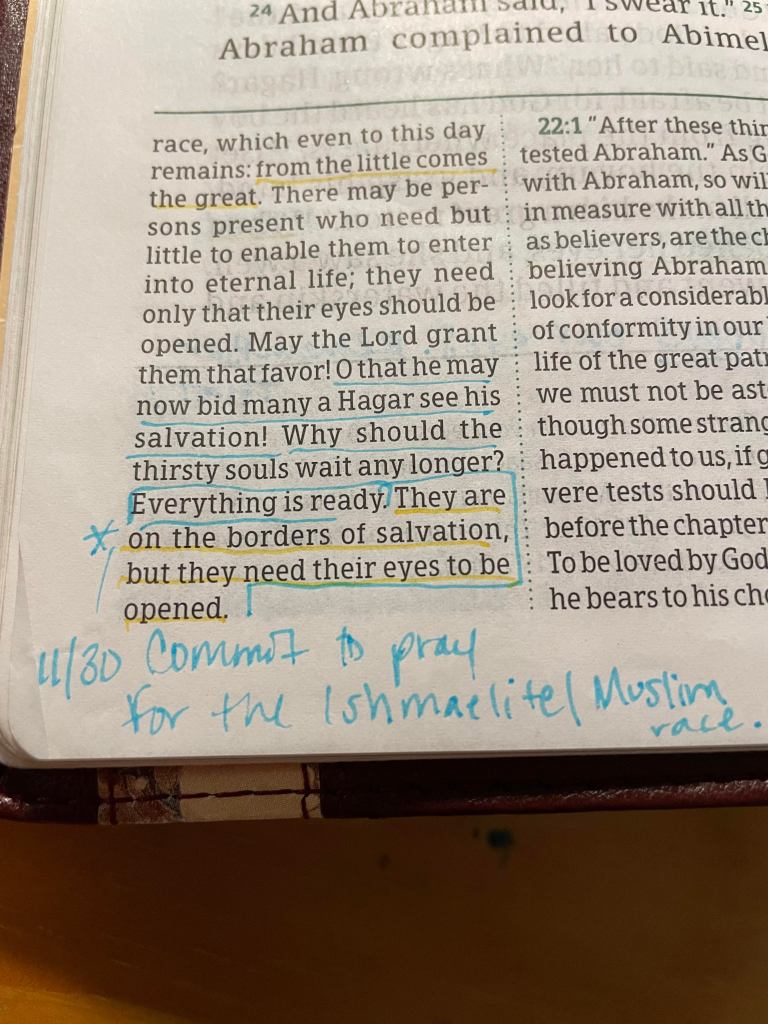 24 And Abraham said, "I swear it." 25
Abraham complained to Abimel
race, which even to this day
remains: from the little comes
the great. There may be per-
sons present who need but
little to enable them to enter
into eternal life; they need
only that their eyes should be
opened. May the Lord grant
them that favor! O that he may
now bid many a Hagar see his
salvation! Why should the
thirsty souls wait any longer?
Everything is ready. They are
on the borders of salvation,
but they need their eyes to be
opened.
22:1 "After these thin
tested Abraham." As G
with Abraham, so wil
in measure with all th
as believers, are the ch
believing Abraham
look for a considerabl
of conformity in our
life of the great patr
we must not be ast
though some strang
happened to us, if g
vere tests should
before the chapter
To be loved by God
he bears to his cho
11/30 Commit to pray
for the Ishmaelite/Muslim
race.